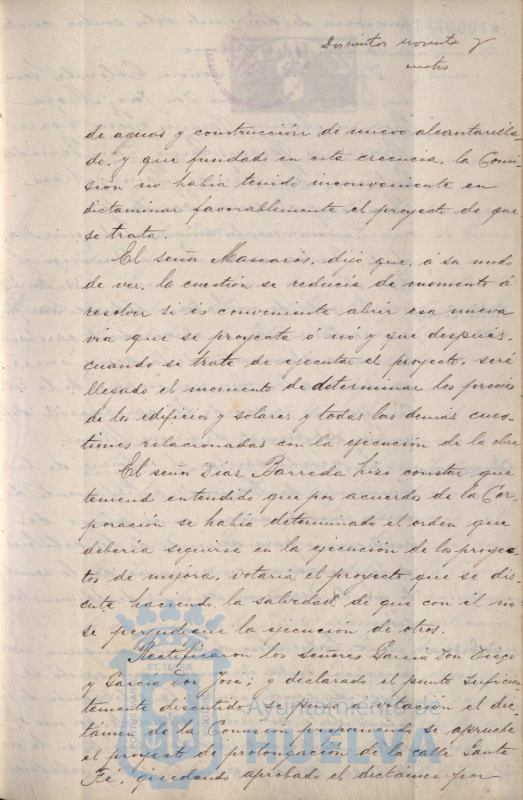 Doscientos noventa y
cuatro
de aguas y construcción de nuevo alcantarilla-
do, y que fundado en esta creencia, la Comi-
sión no había tenido inconveniente en
dictaminar favorablemente el proyecto de que
se trata.
El señor Mascarós, dijo que, á su modo
de ver, la cuestión se reducía de momento á
resolver si es conveniente abrir esa nueva
vía que se proyecta ó nó y que después,
cuando se trate de ejecutar el proyecto, será
llegado el momento de determinar los precios
de los edificios y solares y todas las demás cues-
tiones relacionadas con la ejecución de la obra
El señor Díaz Barreda hizo constar que
teniendo entendido que por acuerdo de la Cor-
poración se había determinado el orden que
debería seguirse en la ejecución de los proyec-
tos de mejora, votaría el proyecto que se dis-
cute haciendo la salvedad de que con él no
se perjudique la ejecución de otros.
Rectificaron los señores García Don Diego
y García Don José; y declarado el punto suficien-
temente discutido, se puso a votación el dic-
támen de la Comisión proponiendo se apruebe
el proyecto de prolongación de la calle Santa
Fé, quedando aprobado el dictámen por
Ayuntamiento de
HUELVA